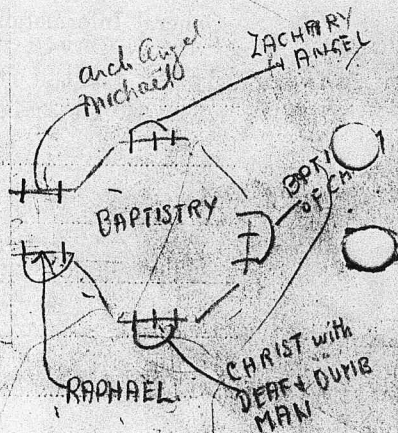 arch Angel
Michael
ZACHARY
4 ANGEL
BAPTISTRY
BAPTI
OF CH
RAPHAEL
CHRIST with
DEAF & DUMB
MAN